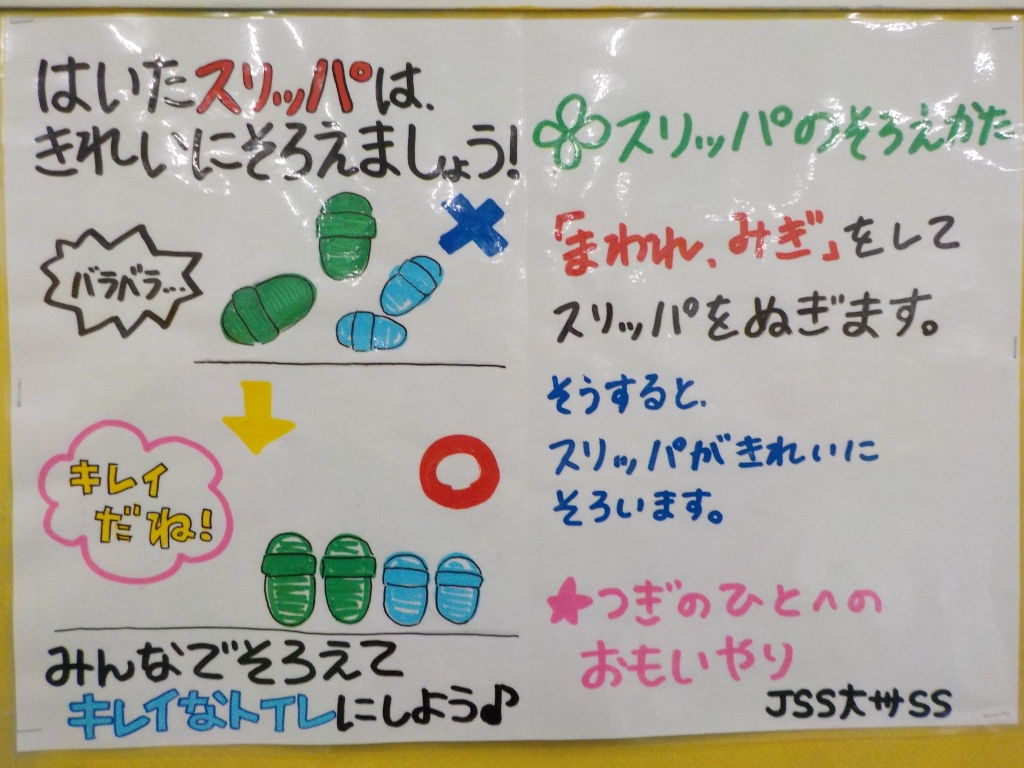 はいたスリッパは、
きれいにそろえましょう!
バラバラ…
キレイ
だね!
みんなでそろえて
キレイなトイレにしよう♪
スリッパのそろえかた
「まわれ、みぎ」をして
スリッパをぬぎます。
そうすると、
スリッパがきれいに
そろいます。
★つぎのひとへの
おもいやり
JSS大サSS